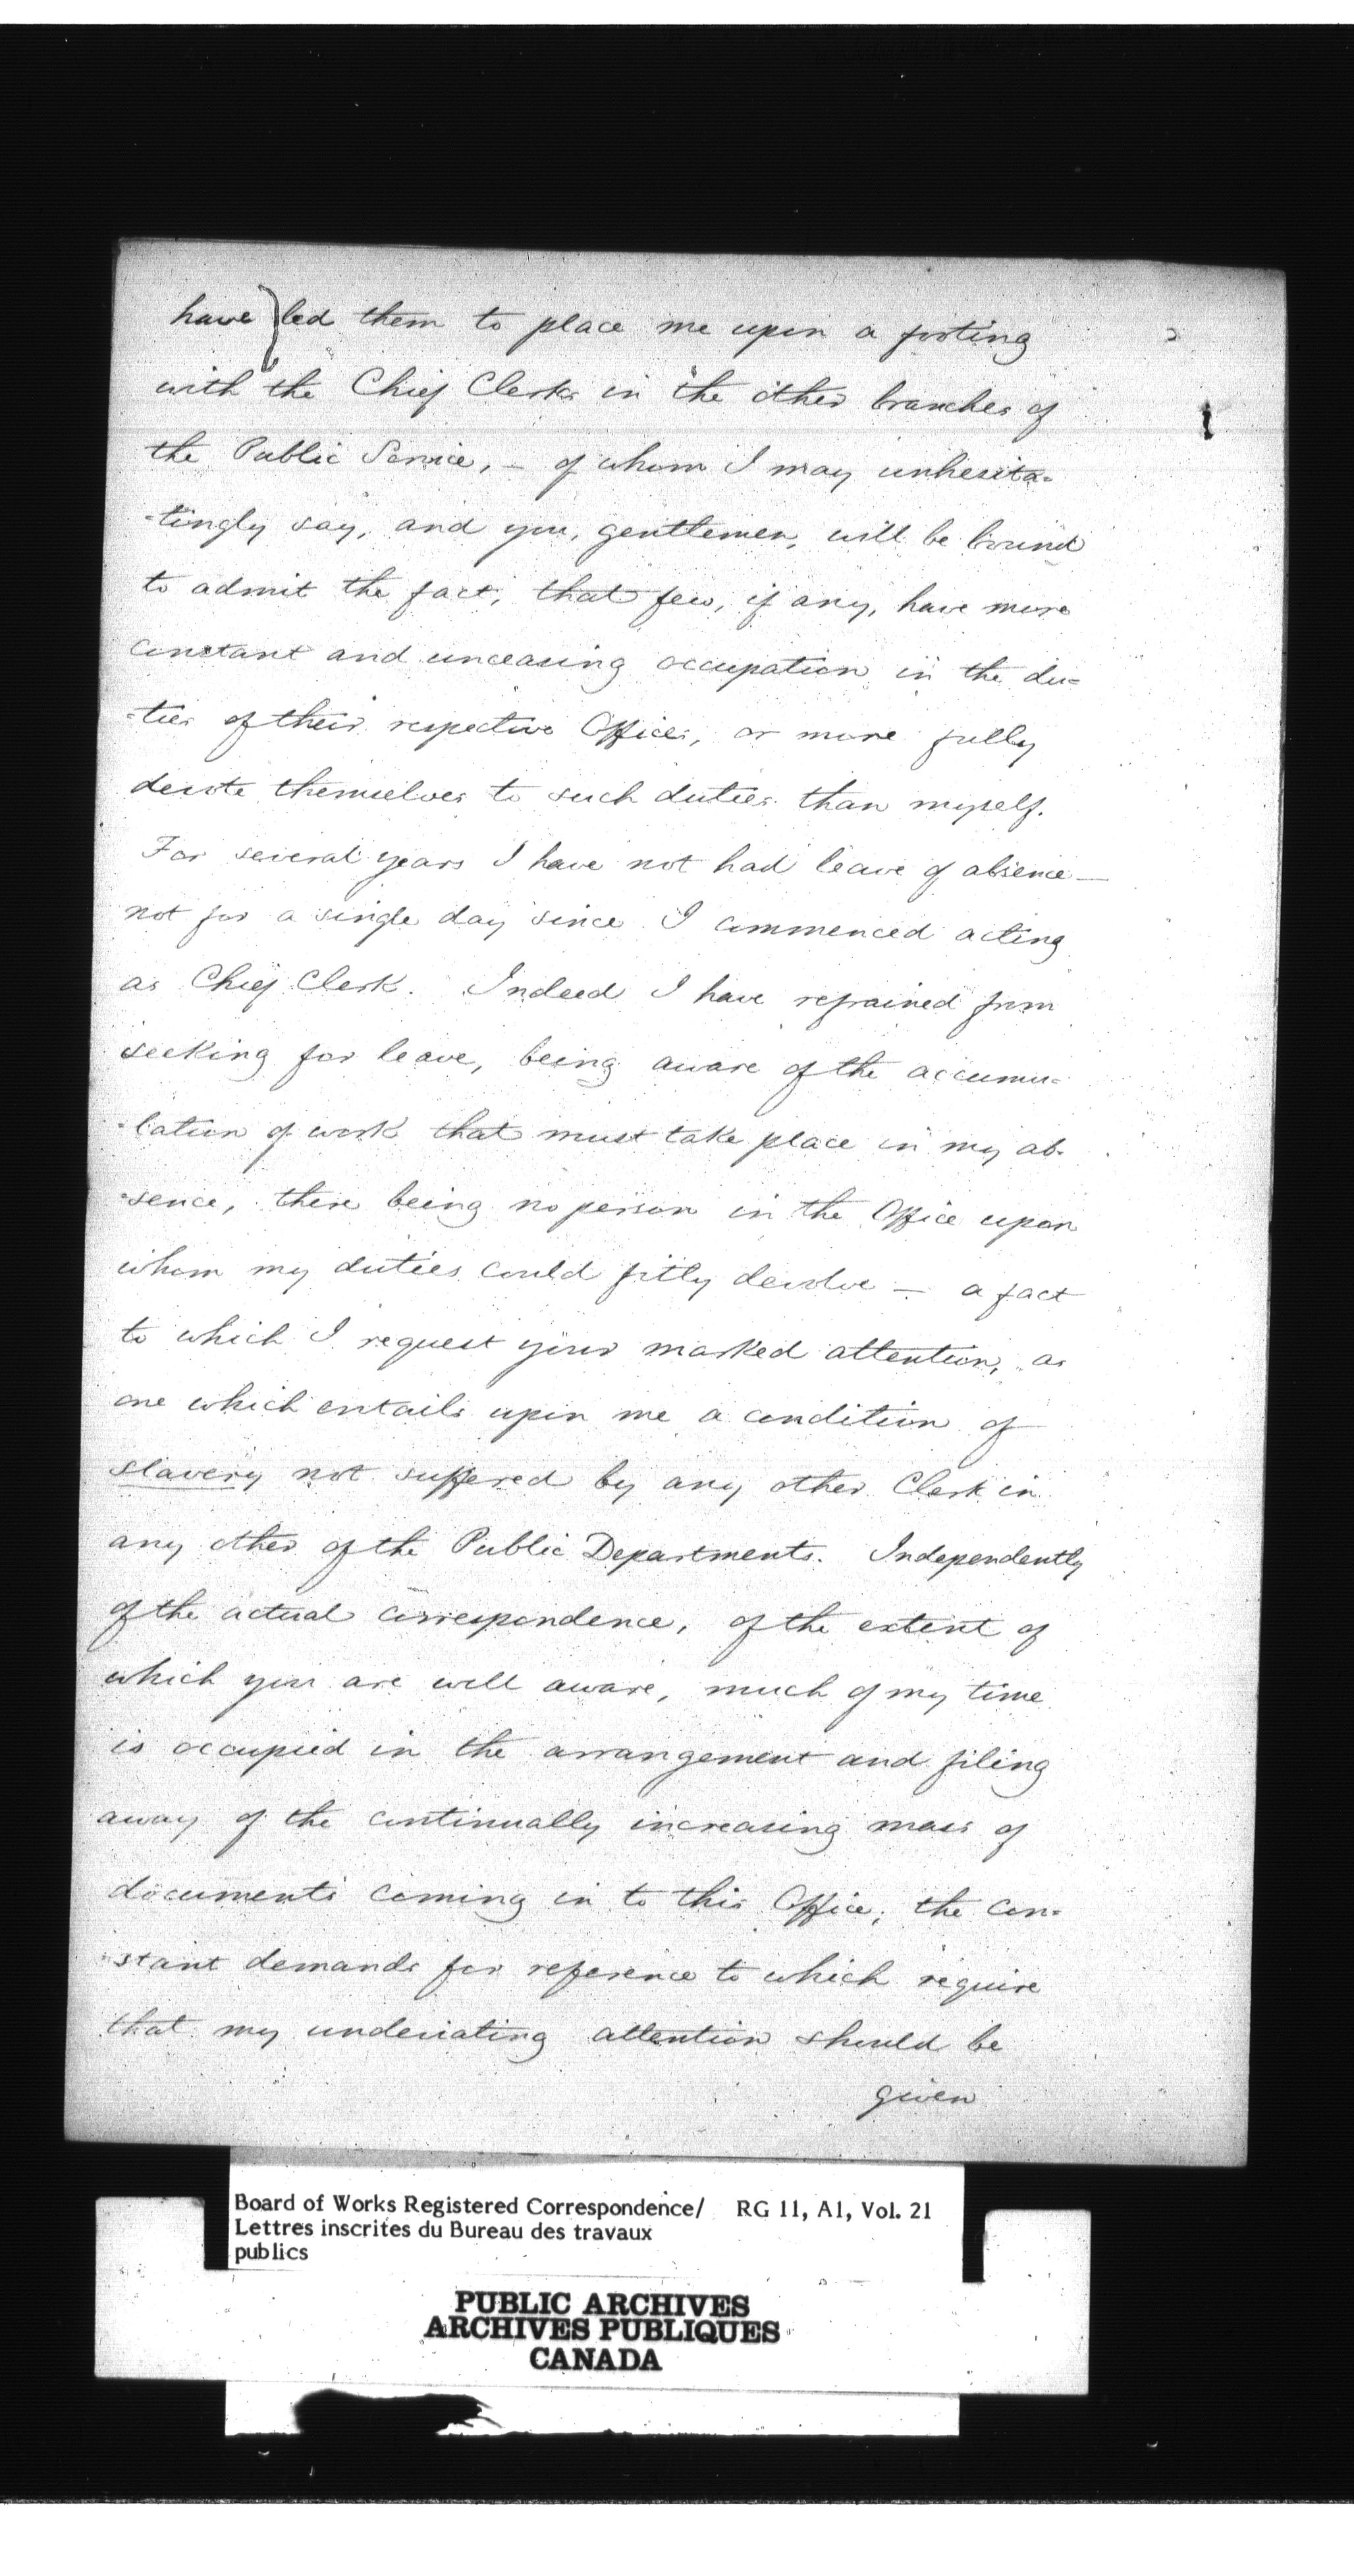 have led them to place me upon a footing
with the Chief Clerks in the other branches of
the Public Service, – of whom I may unhesita=
-tingly say, and you, gentlemen, will be bound
to admit the fact, that few, if any, have more
constant and unceasing occupation in the du=
=ties of their respective Offices, or more fully
devote themselves to such duties than myself.
For several years I have not had leave of absence —
not for a single day since I commenced acting
as Chief Clerk. Indeed I have refrained from
seeking for leave, being aware of the accumu=
-lation of work that must take place in my ab-
-sence, there being no person in the Office upon
whom my duties could fitly devolve — a fact
to which I request your marked attention, as
one which entails upon me a condition of
slavery not suffered by any other Clerk in
any other of the Public Departments. Independently
of the actual correspondence, of the extent of
which you are well aware, much of my time
is occupied in the arrangement and filing
away of the continually increasing mass of
documents coming in to this Office; the con=
=stant demands for reference to which require
that my undeviating attention should be
given
Board of Works Registered Correspondence/ RG 11, A1, Vol. 21
Lettres inscrites du Bureau des travaux
publics
PUBLIC ARCHIVES
ARCHIVES PUBLIQUES
CANADA